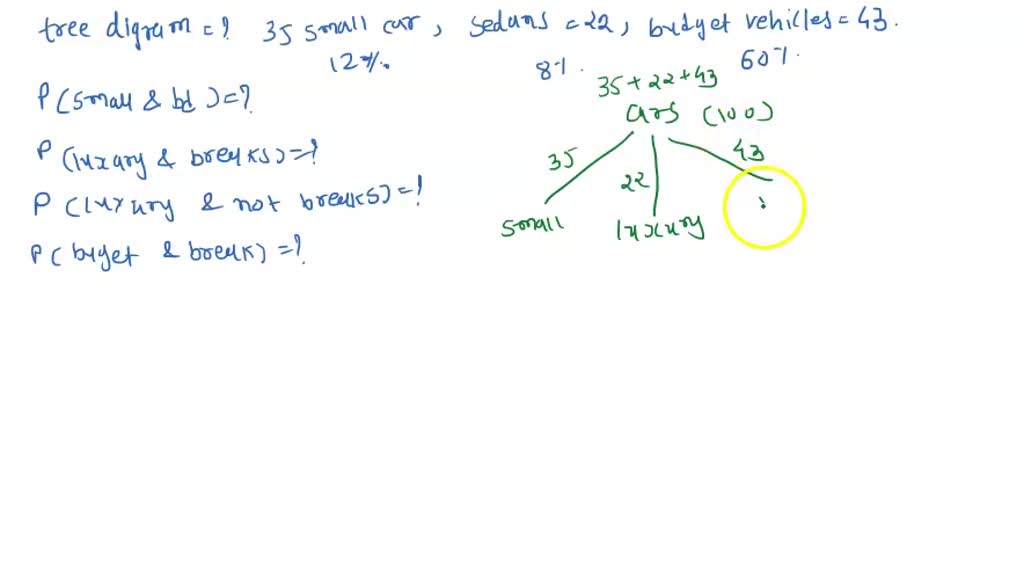 tree digram = ? 35 small car, sedans = 22, budget vehicles = 43.
12%. 8%. 60%.
35 + 22 + 43
P(small & bd) = ?
cars (100)
P(luxury & breaks) = ?
35 22 43
P(luxury & not breaks) = ?
small luxury
P(buget & break) = ?